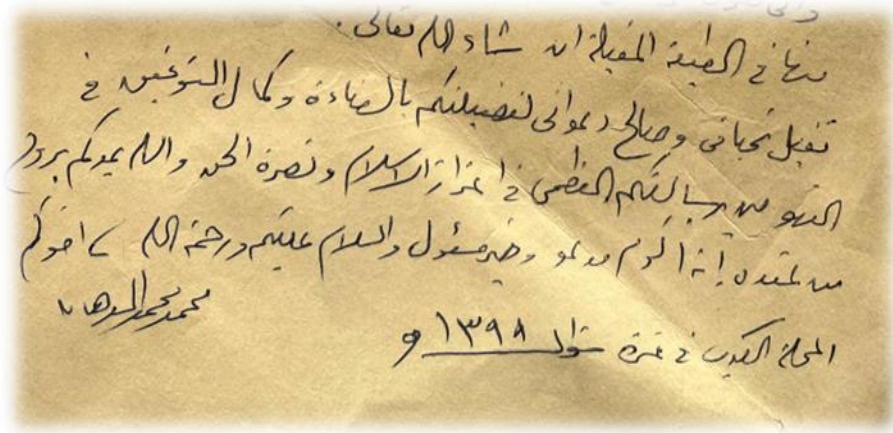 منها في الطبعة المقبلة ان شاء الله تعالى .
تقبل تحياتي وصالح دعواتي لفضيلتكم بالسعادة وكمال التوفيق في
برسالتكم العظمى في اعزاز الاسلام ونصرة الحق والله يمدكم بروح
من عنده إنه اكرم مدعو وخير مسئول والسلام عليكم ورحمة الله اخوكم
محمد محمد
المحلة الكبرى في غرة شوال ١٣٩٨